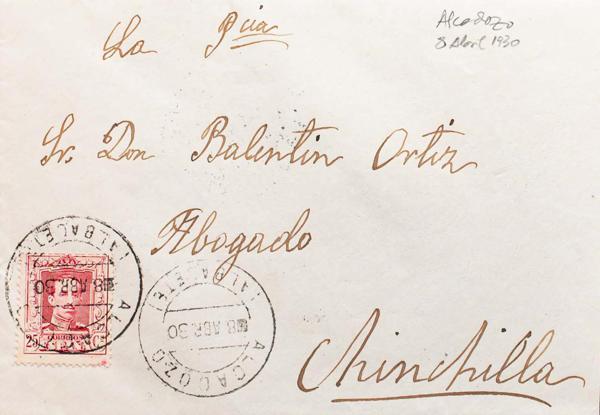 Alcadozo
8 Abril 1930
La Pcia
Sr. Don Balentin Ortiz
Abogado
Chinchilla
(ALBACETE)
8 ABR 30
ALCADOZO
(ALBACETE)
8 ABR. 30
ALCADOZO
CORREOS
25